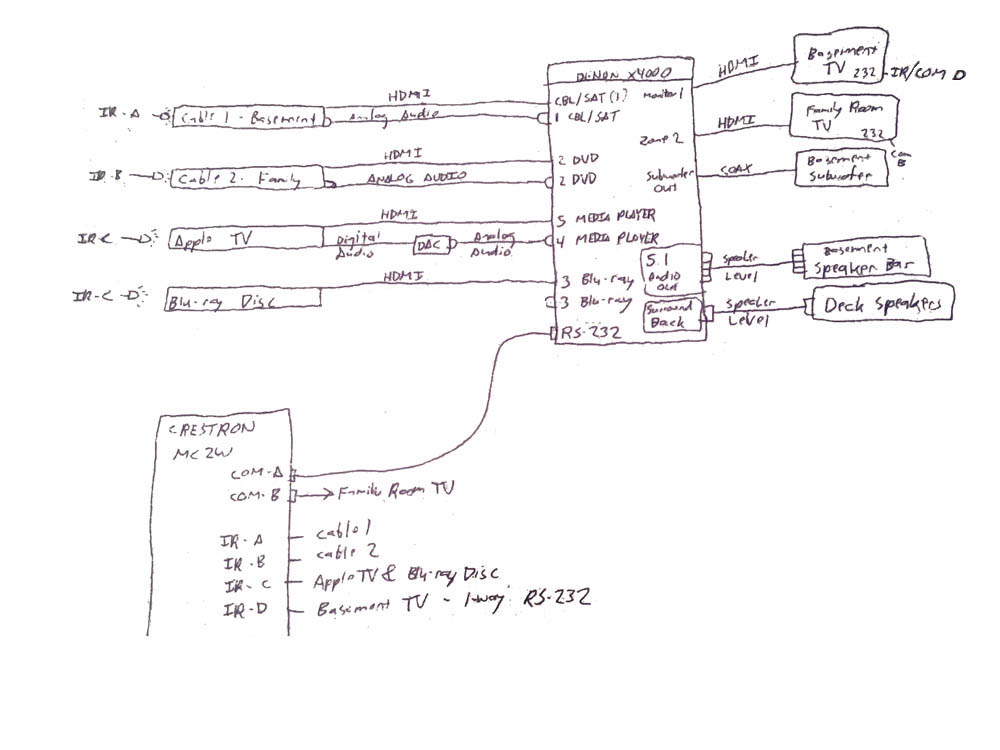 DENON X4000
IR-A
Cable 1 - Basement
HDMI
Analog Audio
CBL/SAT (1)
1 CBL/SAT
Monitor 1
HDMI
Basement
TV 232
IR/COM D
IR-B
Cable 2 - Family
HDMI
ANALOG AUDIO
2 DVD
2 DVD
Zone 2
HDMI
Family Room
TV
232
COM
B
Subwoofer
Out
COAX
Basement
Subwoofer
IR-C
Apple TV
HDMI
Digital
Audio
DAC
Analog
Audio
5 MEDIA PLAYER
4 MEDIA PLAYER
IR-C
Blu-ray Disc
HDMI
3 Blu-ray
3 Blu-ray
5.1
Audio
out
Speaker
Level
Basement
Speaker Bar
Surround
Back
Speaker
Level
Deck Speakers
RS-232
CRESTRON
MC2W
COM-A
COM-B Family Room TV
IR-A cable 1
IR-B cable 2
IR-C Apple TV & Blu-ray Disc
IR-D Basement TV - 1-way RS-232